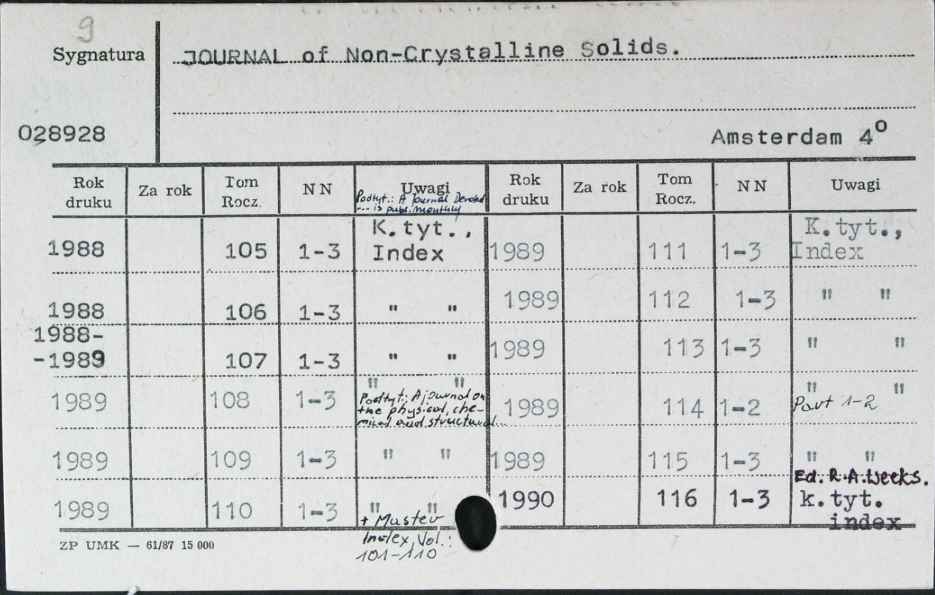 9
Sygnatura JOURNAL of Non-Crystalline Solids.
028928 Amsterdam 4º
Rok druku Za rok Tom Rocz. NN Uwagi Rok druku Za rok Tom Rocz. NN Uwagi
Podtyt.: A Journal Devoted
... is publ. monthly
1988 105 1-3 K.tyt., Index 1989 111 1-3 K.tyt., Index
1988 106 1-3 " " 1989 112 1-3 " "
1988-
-1989 107 1-3 " " 1989 113 1-3 " "
1989 108 1-3 " " 1989 114 1-2 " "
Podtyt: A journal on
the physical, che-
mical and structural...
Part 1-2
1989 109 1-3 " " 1989 115 1-3 " "
Ed. R.A.Weeks.
1989 110 1-3 " " 1990 116 1-3 k.tyt.
index
+ Master
Index, Vol.:
101-110
ZP UMK — 61/87 15 000